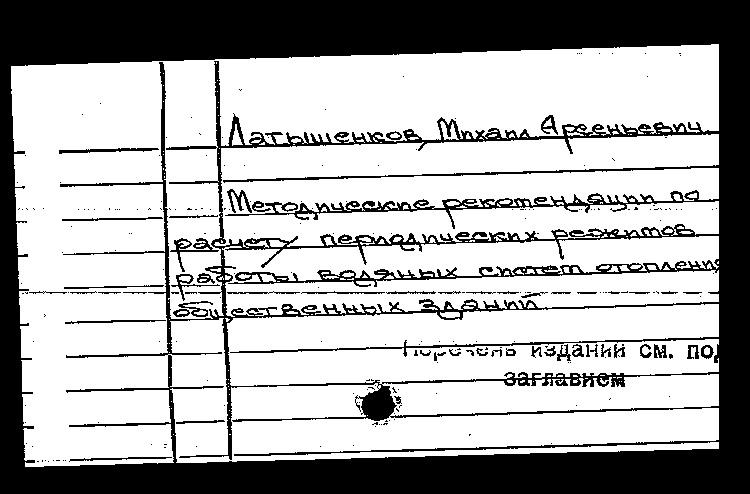 Латышенков, Михаил Арсеньевич.
Методические рекомендации по
расчету периодических режимов
работы водяных систем отопления
общественных зданий
Перечень изданий см. под
заглавием